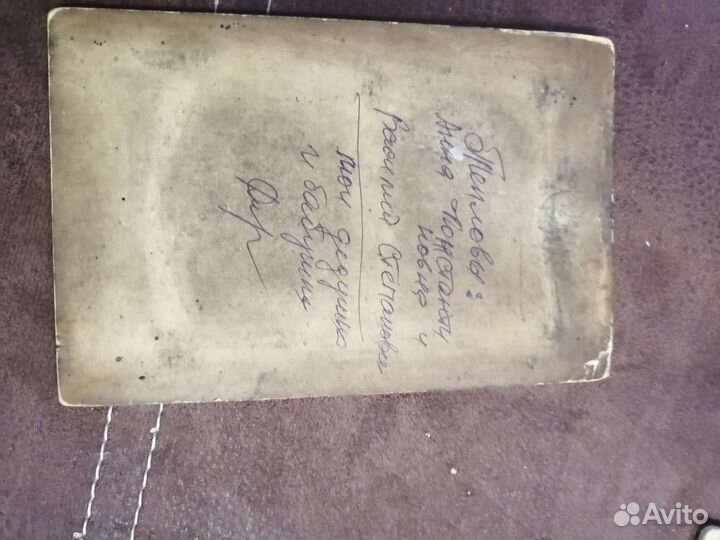 Тепловы:
Анна Константи
новна и
Василий Степанович
мои дедушка
и бабушка
Avito